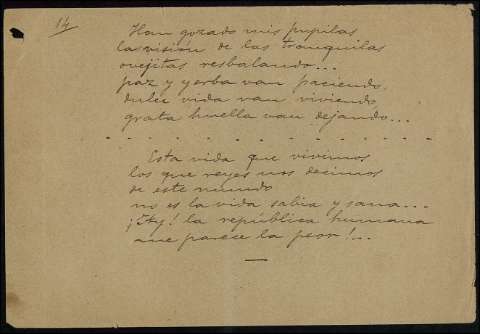 14
Han gozado mis pupilas
la visión de las tranquilas
ovejitas resbalando...
paz y yerba van paciendo,
dulce vida van viviendo,
grata huella van dejando...
- - - - - - - - - - - - -
Esta vida que vivimos
los que reyes nos decimos
de este mundo
no es la vida sabia y sana...
¡Ay! la república humana
me parece la peor!...